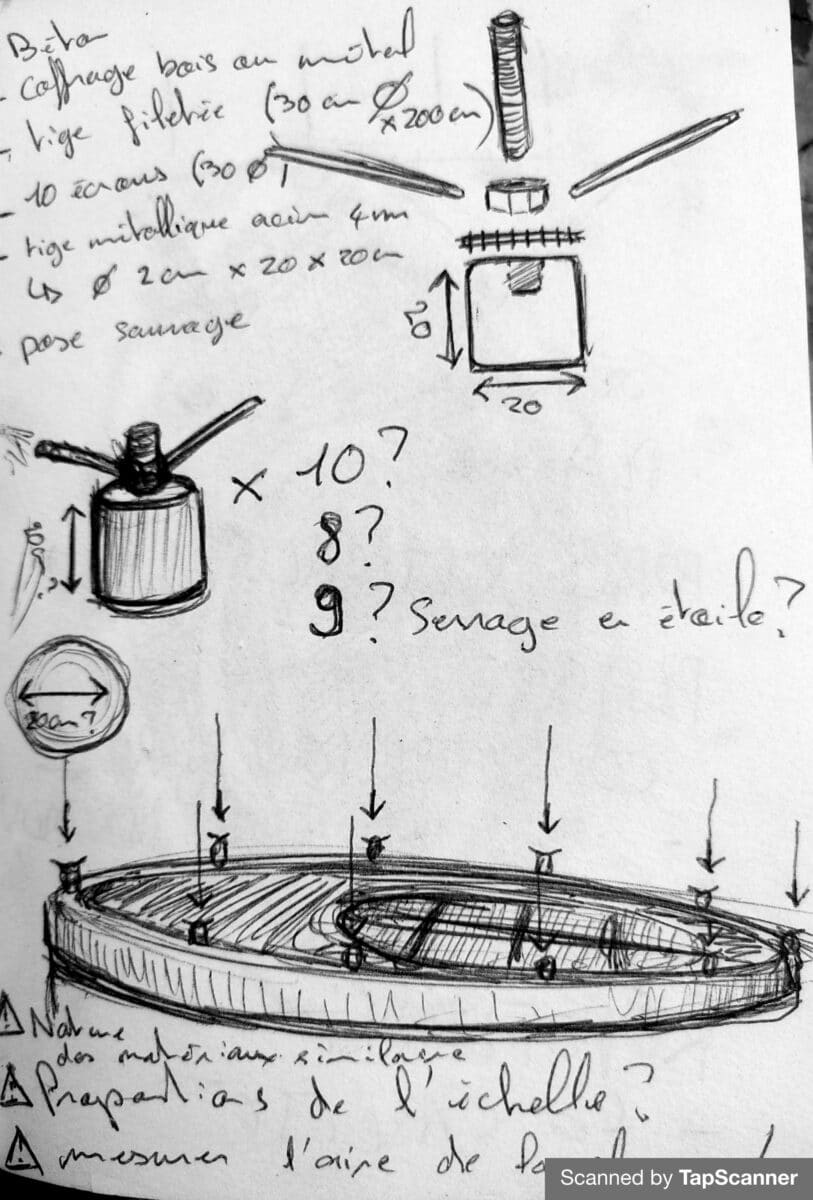 Béton
- coffrage bois ou métal
- tige filetée (30 cm Ø
x 200 cm)
- 10 écrous (30 Ø)
- tige métallique acier 4 mm
↳ Ø 2 cm x 20 x 20 cm
- pose sauvage
20
20
x 10?
8?
9? Serrage en étoile?
20cm?
⚠ Nature
des matériaux similaire
⚠ Proportions de l'échelle?
⚠ mesurer l'aire de
Scanned by TapScanner